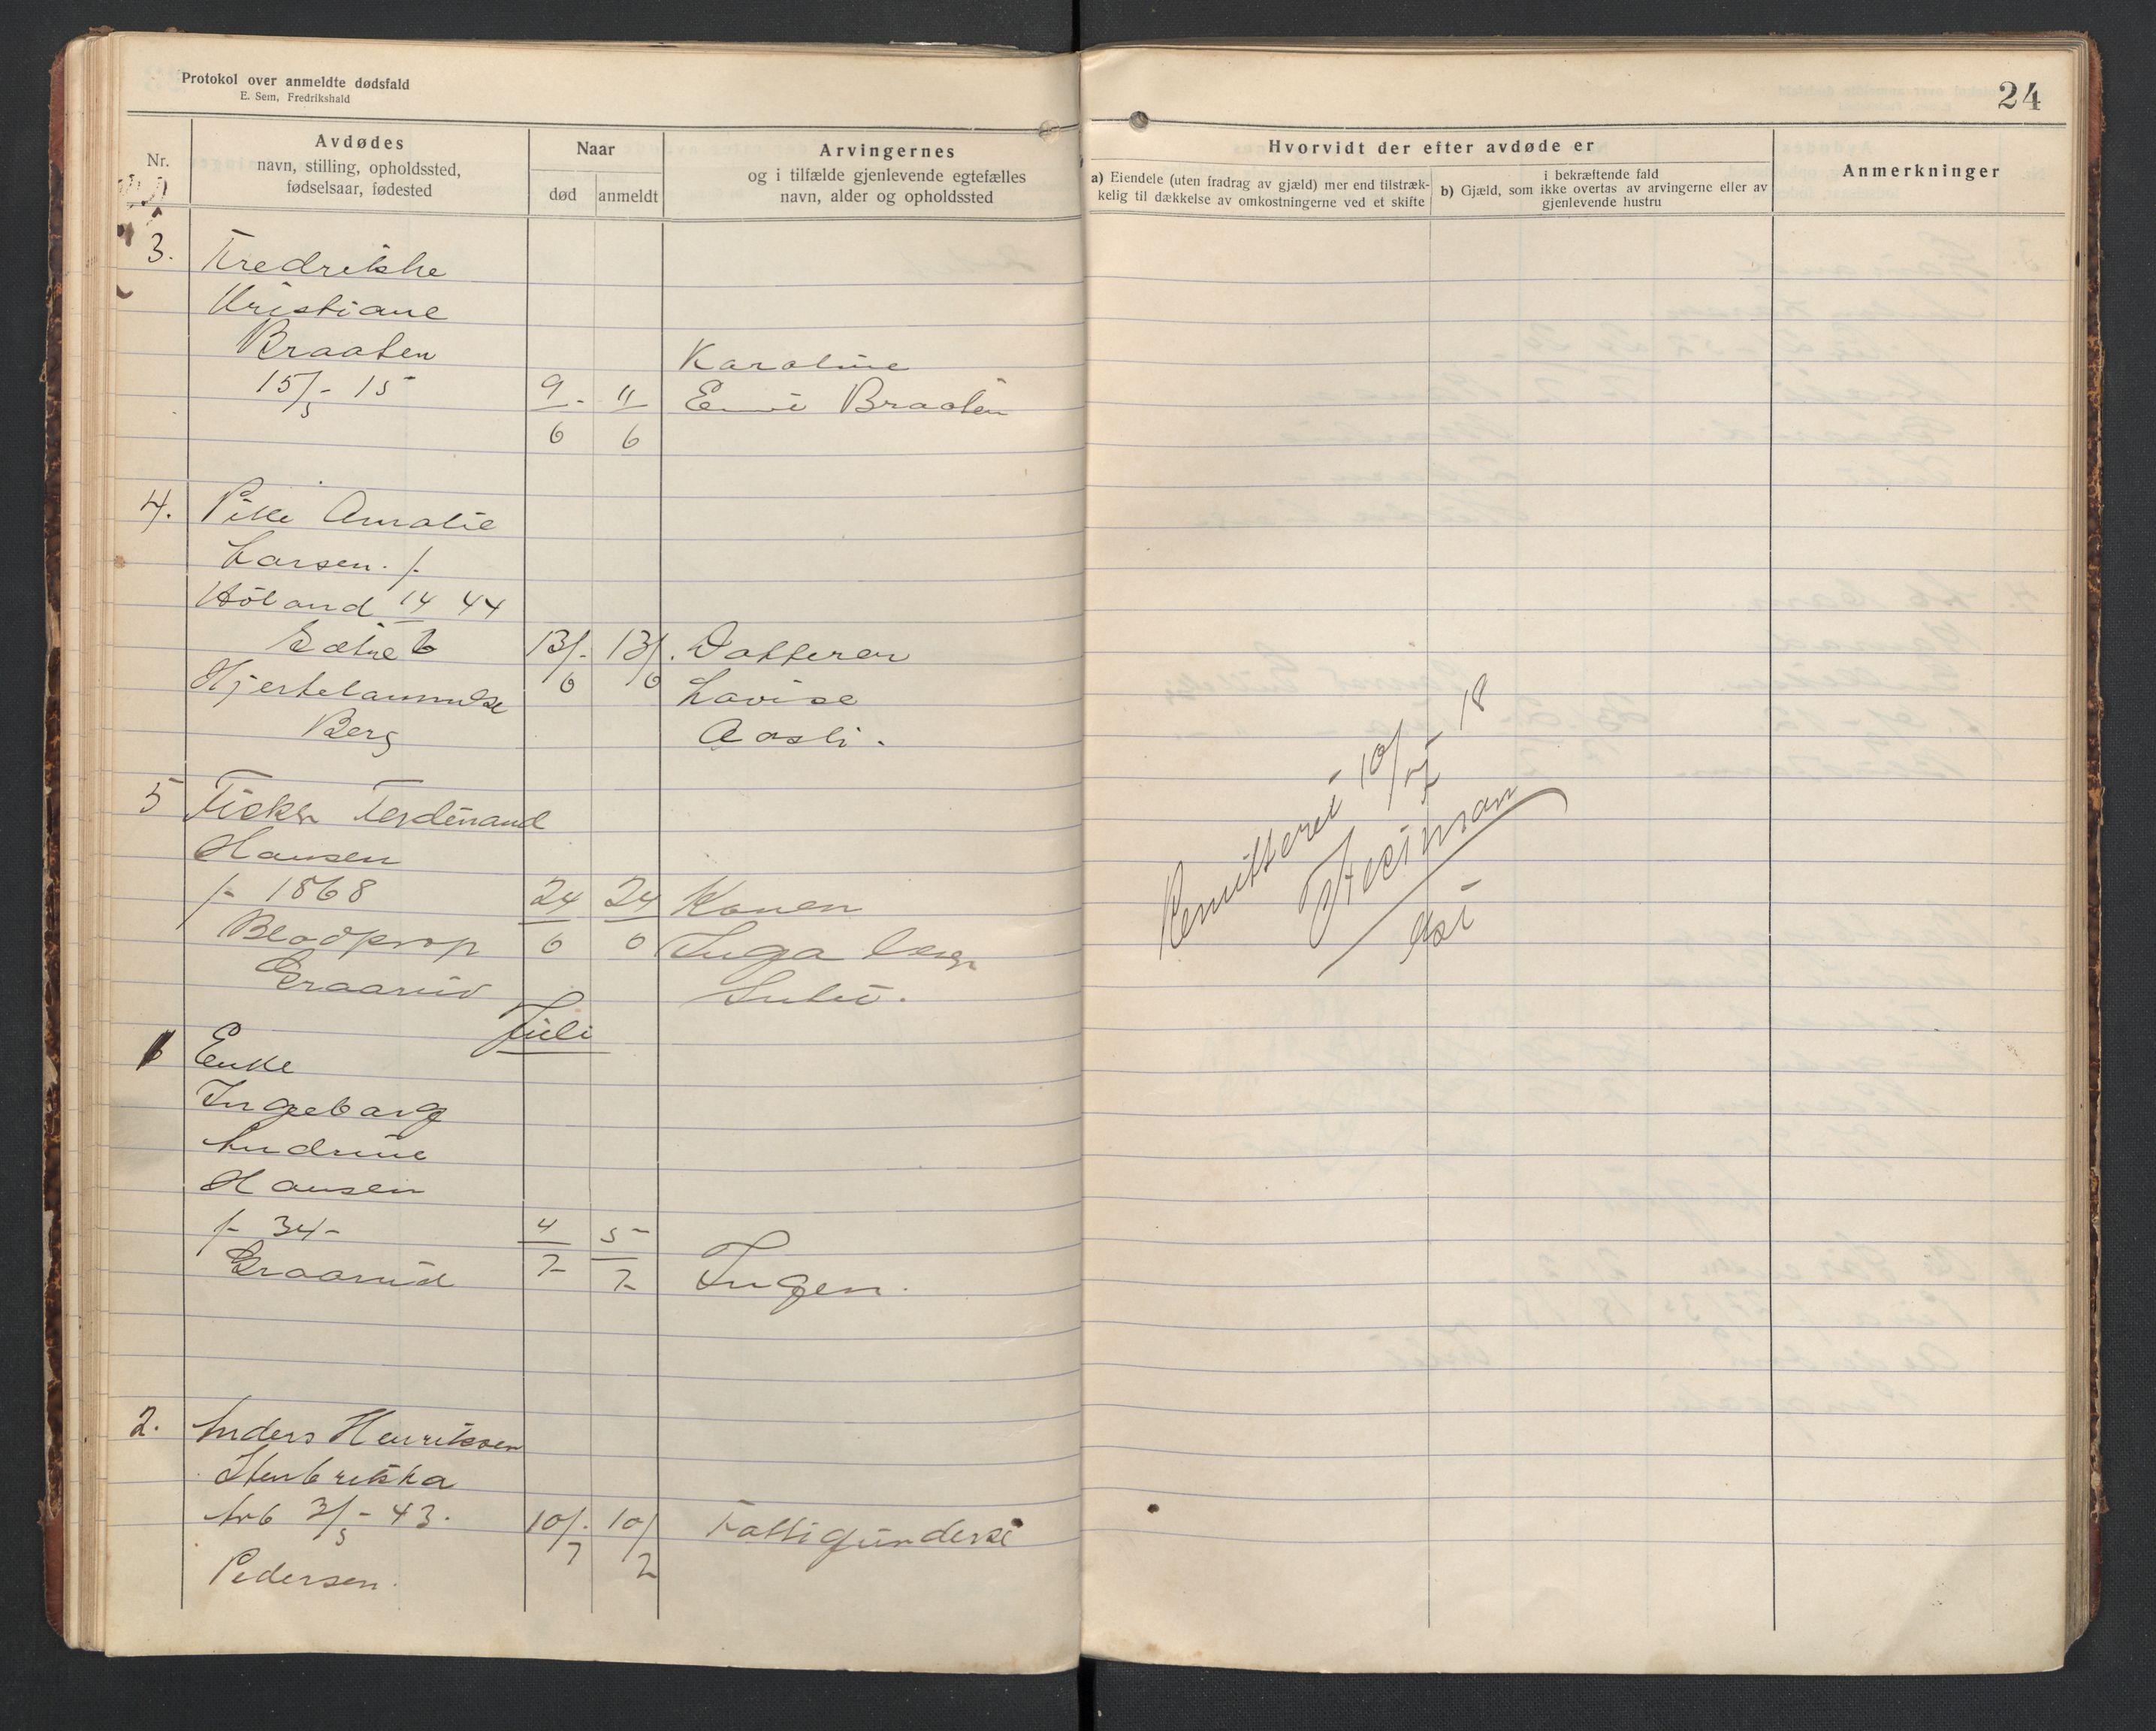 Protokol over anmeldte dødsfald
E. Sem, Fredrikshald
Nr.
Avdødes
navn, stilling, opholdssted,
fødselsaar, fødested
Naar
død
anmeldt
Arvingernes
og i tilfælde gjenlevende egtefælles
navn, alder og opholdssted
3.
Fredrikke
Kristiane
Braaten
15/5 - 15
9/6
11/6
Karoline
Braaten
4.
Pike Amalie
Larsen. f.
Höland 14 44
13/6
13/6
Datteren
Lovise
Aasli.
Berg
5
Fisker Ferdinand
Hansen
f- 1868
24/6
24/6
Konen
Blodprop
Inga
Graarud
Juli
1
Enke
Ingeborg
Andrine
Hansen
f- 34-
4/7
5/7
Graarud
Ingen.
2.
Anders Henriksen
Arb 3/5 - 43.
10/7
10/7
Pedersen.
24
Hvorvidt der efter avdøde er
a) Eiendele (uten fradrag av gjæld) mer end tilstræk-
kelig til dækkelse av omkostningerne ved et skifte
i bekræftende fald
b) Gjæld, som ikke overtas av arvingerne eller av
gjenlevende hustru
Anmerkninger
10/7 - 18